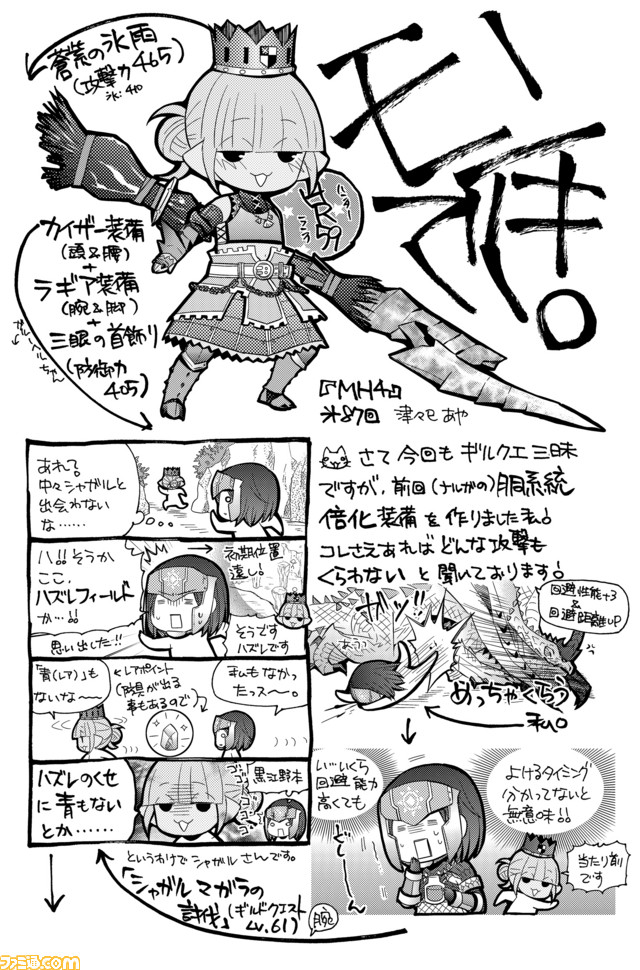 モン
でき。
蒼荒の氷雨
(攻撃力465
氷:410
HR59
カイザー装備
(頭&腰)
+
ラギア装備
(腕&脚)
+
三眼の首飾り
(防御力
405)
『MH4』
第87回 津々巳あや
さて今回もギルクエ三昧
ですが、前回(ナルガの)胴系統
倍化装備を作りました私!
コレさえあればどんな攻撃も
くらわないと聞いております!
回避性能+3
&
回避距離UP
ガッ!!
あうっ
めっちゃくらう
私。
い…いくら
回避能力
高くても
よけるタイミング
分かってないと
無意味!!
どーん
当たり前
です
あれ?
中々シャガルと
出会わない
な……
ハ!! そうか
ここ、
ハズレフィールド
か…!!
思い出した!!
初期位置
遠し!
そうです
ハズレです
「青(レア)」も
ないな〜
レアポイント
(防具が出る
事もあるので)
私もなかっ
たっス〜。
ハズレのくせ
に青もない
とか……
ゴゴゴゴゴ
黒江野本
というわけでシャガルさんです。
「シャガルマガラの
討伐」(ギルドクエスト
Lv.61)
腕
ファミ通.com